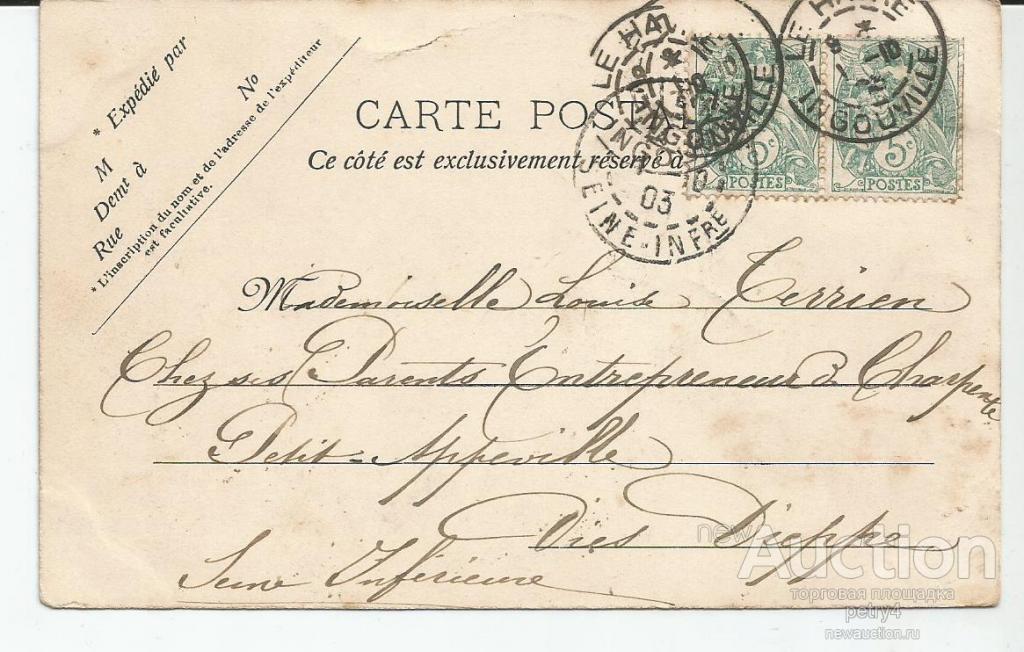 * Expédié par
M
Demt à
Rue No
* L'inscription du nom et de l'adresse de l'expéditeur
est facultative.
CARTE POSTALE
Ce côté est exclusivement réservé à
LE HAVRE
INGOUVILLE
LE HAVRE
INGOUVILLE
03
SEINE-INFRE
5c
POSTES
5c
POSTES
Mademoiselle Louise Terrien
Chez ses Parents Entrepreneur d Charpente
Petit-Appeville
Près Dieppe
Seine Inférieure
newAuction
торговая площадка
petry4
newauction.ru